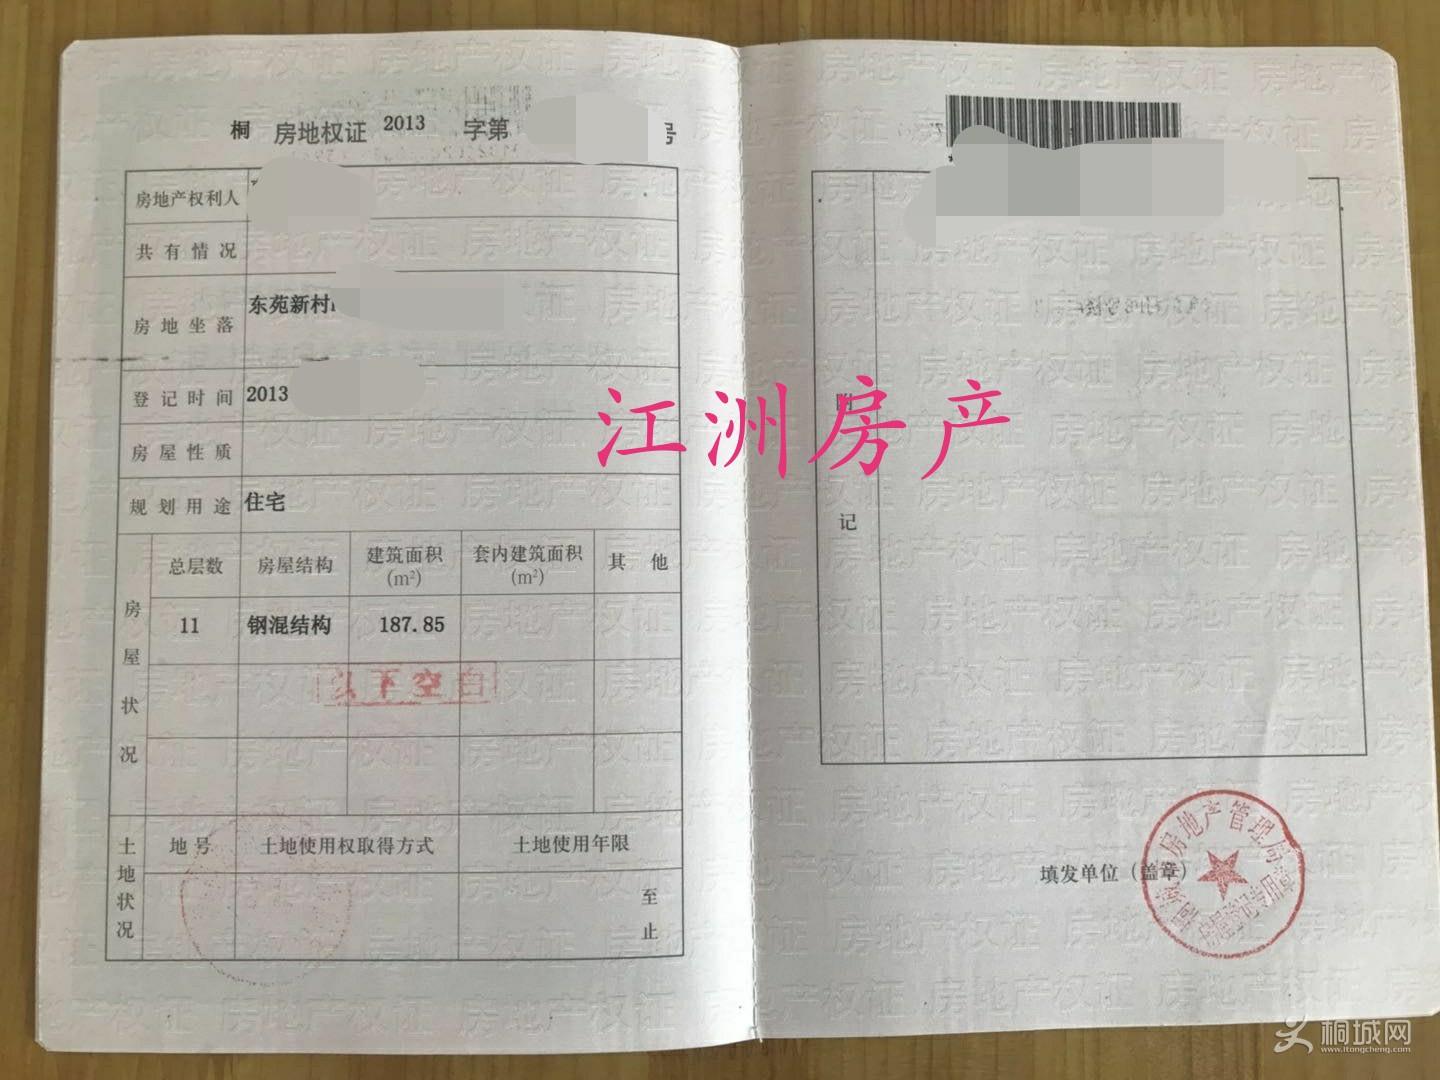 桐 房地权证 2013 字第 号
房地产权利人
共有情况
房地坐落 东苑新村
登记时间 2013
房屋性质
规划用途 住宅
房屋状况
总层数 房屋结构 建筑面积(m²) 套内建筑面积(m²) 其他
11 钢混结构 187.85
以下空白
土地状况
地号 土地使用权取得方式 土地使用年限
至
止
附
记
填发单位(盖章)
桐城市房地产管理局
房屋登记专用章
江洲房产
桐城网
www.itongcheng.com